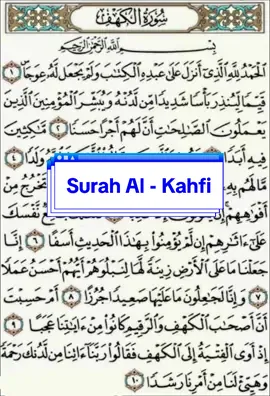 سُورَةُ الْكَهْفِ
بِسْمِ اللَّهِ الرَّحْمَٰنِ الرَّحِيمِ
الْحَمْدُ لِلَّهِ الَّذِي أَنزَلَ عَلَىٰ عَبْدِهِ الْكِتَابَ وَلَمْ يَجْعَل لَّهُ عِوَجًا ۜ ١
قَيِّمًا لِّيُنذِرَ بَأْسًا شَدِيدًا مِّن لَّدُنْهُ وَيُبَشِّرَ الْمُؤْمِنِينَ الَّذِينَ
يَعْمَلُونَ الصَّالِحَاتِ أَنَّ لَهُمْ أَجْرًا حَسَنًا ٢ مَّاكِثِينَ
فِيهِ أَبَدًا وَلَدًا ٤
مَّا لَهُم بِهِ تَخْرُجُ مِنْ
Surah Al - Kahfi
أَفْوَاهِهِمْ نَّفْسَكَ
عَلَىٰ آثَارِهِمْ إِن لَّمْ يُؤْمِنُوا بِهَٰذَا الْحَدِيثِ أَسَفًا ٦ إِنَّا
جَعَلْنَا مَا عَلَى الْأَرْضِ زِينَةً لَّهَا لِنَبْلُوَهُمْ أَيُّهُمْ أَحْسَنُ عَمَلًا
٧ وَإِنَّا لَجَاعِلُونَ مَا عَلَيْهَا صَعِيدًا جُرُزًا ٨ أَمْ حَسِبْتَ
أَنَّ أَصْحَابَ الْكَهْفِ وَالرَّقِيمِ كَانُوا مِنْ آيَاتِنَا عَجَبًا ٩
إِذْ أَوَى الْفِتْيَةُ إِلَى الْكَهْفِ فَقَالُوا رَبَّنَا آتِنَا مِن لَّدُنكَ رَحْمَةً
وَهَيِّئْ لَنَا مِنْ أَمْرِنَا رَشَدًا ١٠